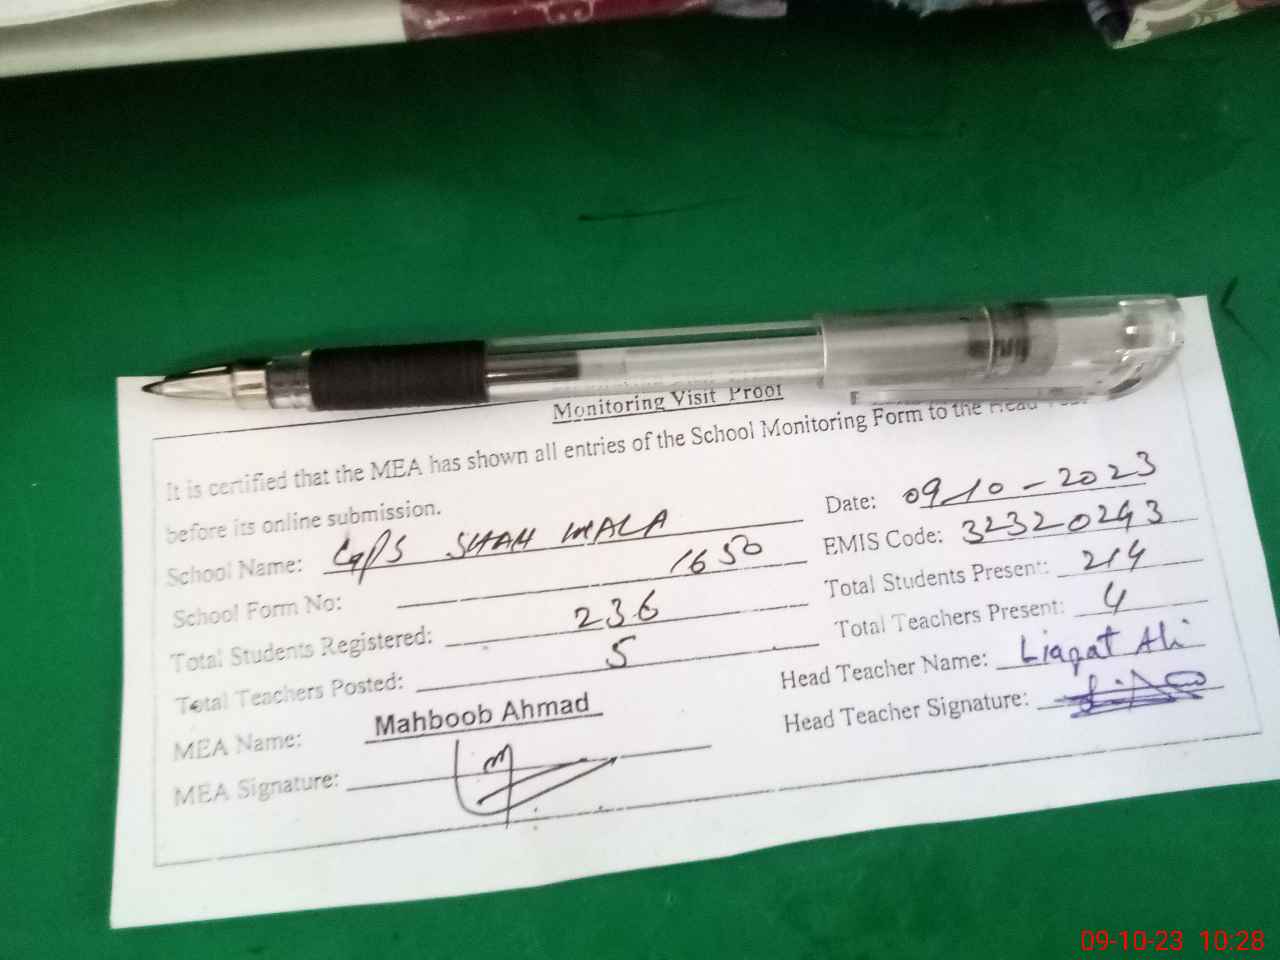 Monitoring Visit Proof
It is certified that the MEA has shown all entries of the School Monitoring Form to the Head
before its online submission.
Date: 09-10-2023
School Name: GPS SHAH WALA
EMIS Code: 32320243
School Form No: 1650
Total Students Present: 214
Total Students Registered: 236
Total Teachers Present: 4
Total Teachers Posted: 5
Head Teacher Name: Liaqat Ali
MEA Name: Mahboob Ahmad
Head Teacher Signature:
MEA Signature:
09-10-23 10:28